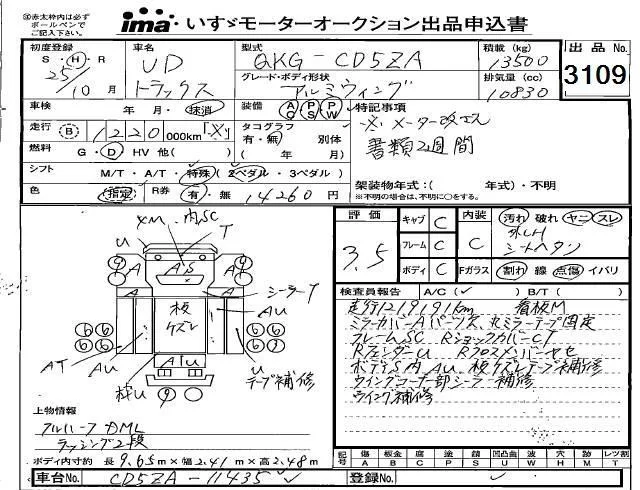 ③赤太枠内は必ず
ボールペンで
ご記入下さい。
ima いすゞモーターオークション出品申込書
初度登録 S・H・R 25/10月
車名 UD トラックス
型式 QKG-CD5ZA
グレード・ボディ形状 アルミウイング
積載(kg) 13500
排気量(cc) 10830
出品No. 3109
車検 年 月・抹消
装備 AC PS PW
特記事項
※メーター改ざん
書類2週間
走行 B 1220 000km
タコグラフ 有・無 別体
( 年 月)
燃料 G・D HV 他( )
シフト M/T・A/T・特殊(2ペダル・3ペダル)
色 指定 R券 有・無 14260円
架装物年式:( 年式)・不明
※不明の場合は、不明に○をする。
評価 3.5
キャブ C
フレーム C
ボディ C
内装 C
Fガラス
汚れ 破れ ヤニ スレ
シートヘタリ
割れ 線 点傷 イバリ
XM 内SC
U T
9 9 9 9
AS
A A
シーラーT
板ケズレ
AU
6 6 6 6
6 6 6
AT Au
AU
U
テープ補修
枠U 9
検査員報告 A/C(✓) B/T( )
走行121,919km 看板M
ミラーカバーA バーンス、左ミラーテープ固定
フレームSC RショックカバーCT
RフェンダーU
ボデーS内AU 板ケズレテープ補修
ウイングコーナー部シーラー補修
ウイング補修
上物情報
ラッシング2段
ボディ内寸約 長 9.65m×幅 2.41m×高 2.48m
記号 傷A 板金B 腐C 塗P 錆S 凹凸曲U 波W 穴H 要交換X 目立M レツ割T
車台No. CD5ZA-11435
登録No.